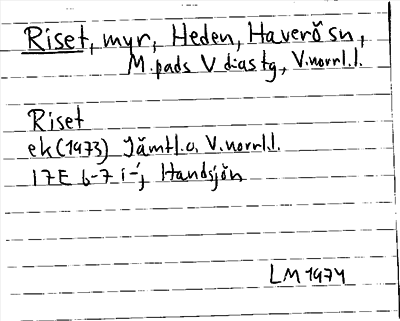 Riset, myr, Heden, Haverö sn,
M.pads V dias tg, V.norrl.l.
Riset
ek (1973) Jämtl.o. V.norrl.l.
17E 6-7 i-j Handsjön
LM 1974